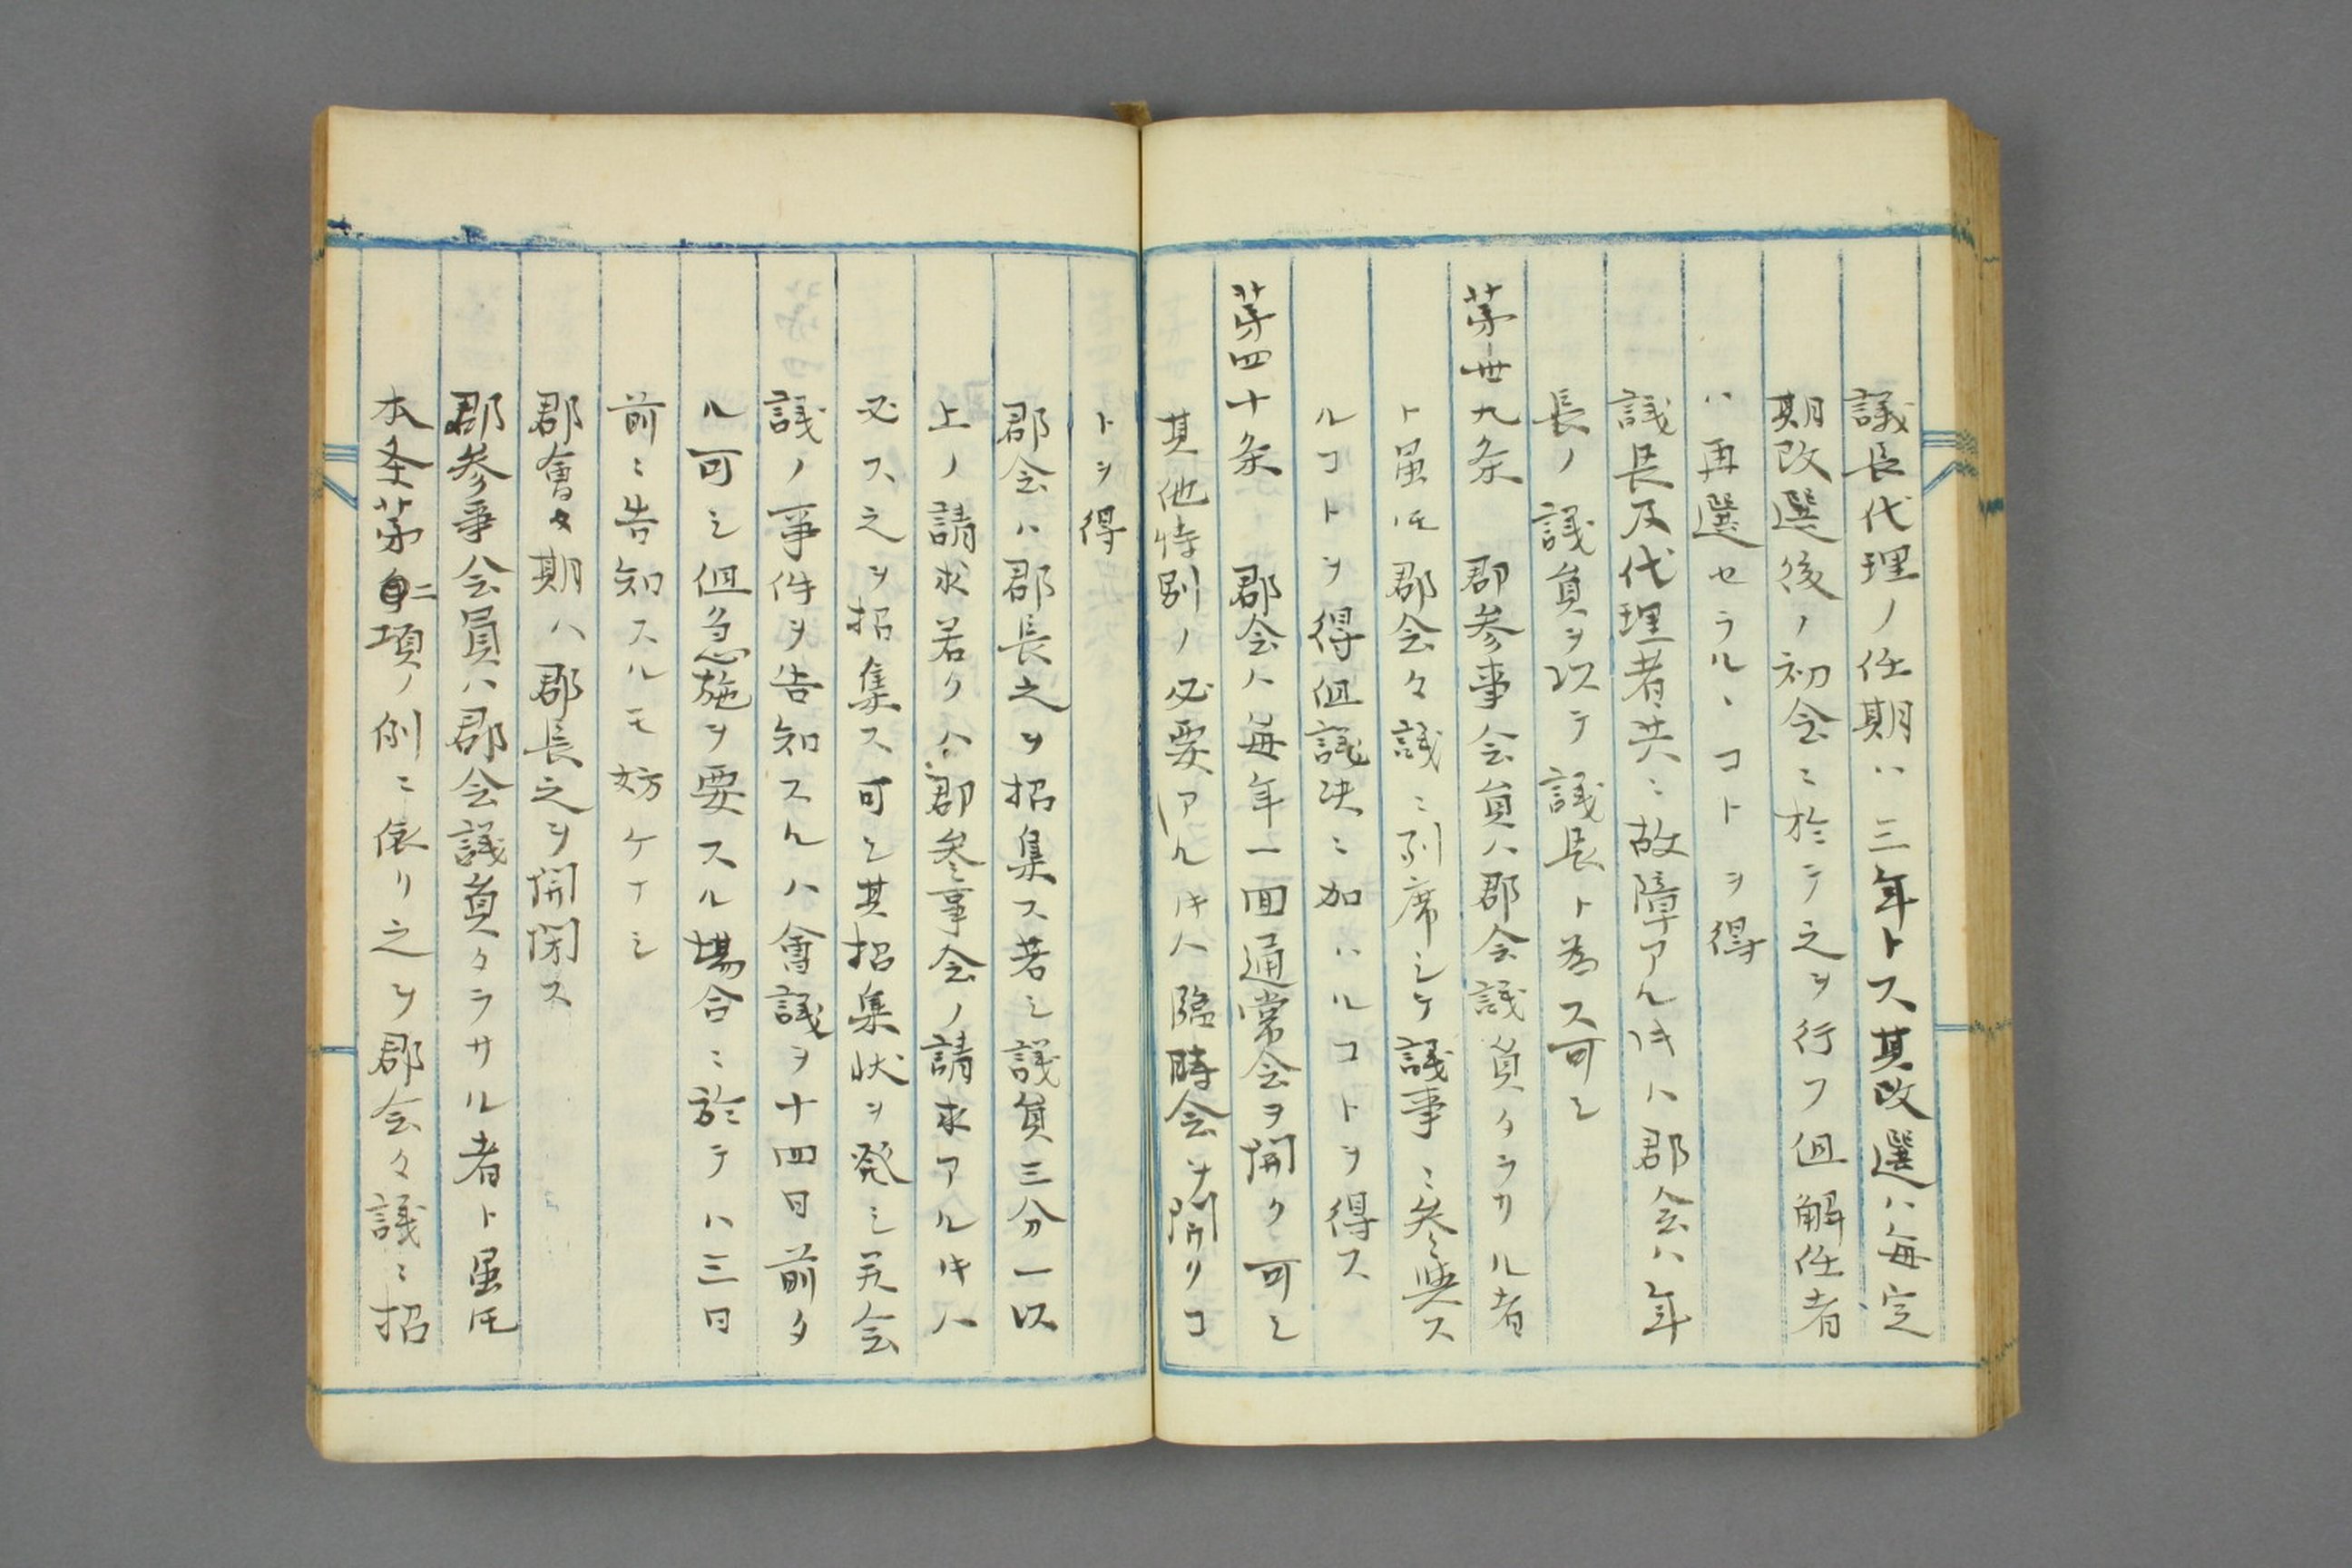 議長代理ノ任期ハ三年トス其改選ハ毎定
期改選後ノ初会ニ於テ之ヲ行フ但解任者
ハ再選セラルヽコトヲ得
議長及代理者共ニ故障アルヰハ郡会ハ年
長ノ議員ヲ以テ議長ト為ス可シ
第卅九条 郡参事会員ハ郡会議員タラサル者
ト虽𪜈郡会々議ニ列席シテ議事ニ参與ス
ルコトヲ得但議决ニ加ハルコトヲ得ス
第四十条 郡会ハ毎年一回通常会ヲ開ク可シ
其他特別ノ必要アルヰハ臨時会ヲ開クコ
トヲ得
郡会ハ郡長之ヲ招集ス若シ議員三分一以
上ノ請求若クハ郡参事会ノ請求アルヰハ
必ス之ヲ招集ス可シ其招集状ヲ発シ並会
議ノ事件ヲ告知スルハ會議ヲ十四日前タ
ル可シ但急施ヲ要スル場合ニ於テハ三日
前ニ告知スルモ妨ケナシ
郡會々期ハ郡長之ヲ開閉ス
郡参事会員ハ郡会議員タラサル者ト虽𪜈
本条第二項ノ例ニ依リ之ヲ郡会々議ニ招